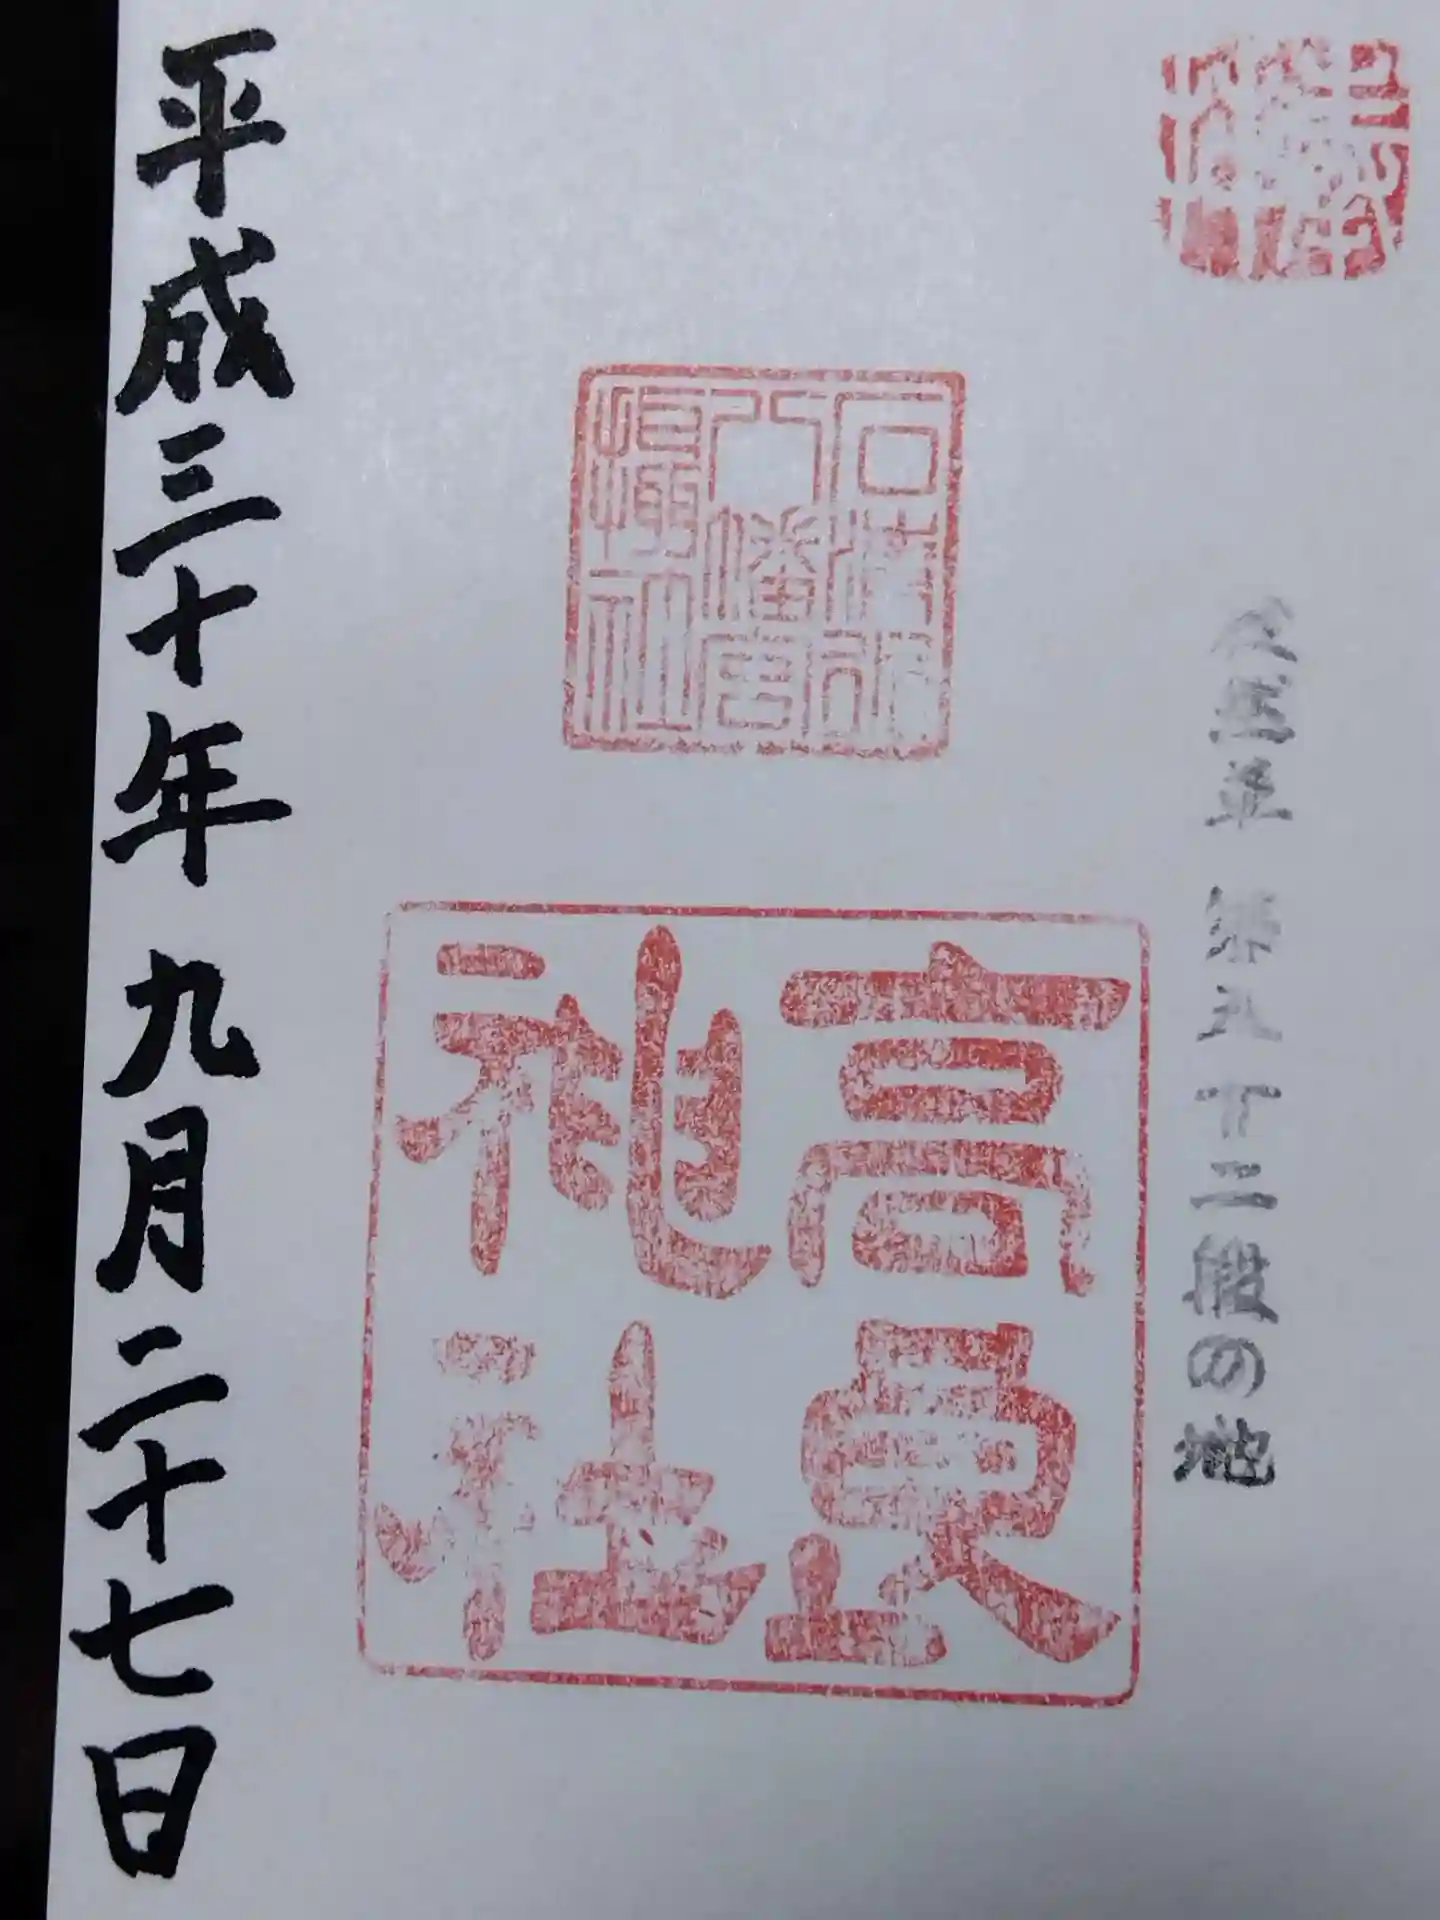 徒然草 第五十二段の地
石清水
八幡宮
攝社
高良
神社
平成三十年 九月二十七日